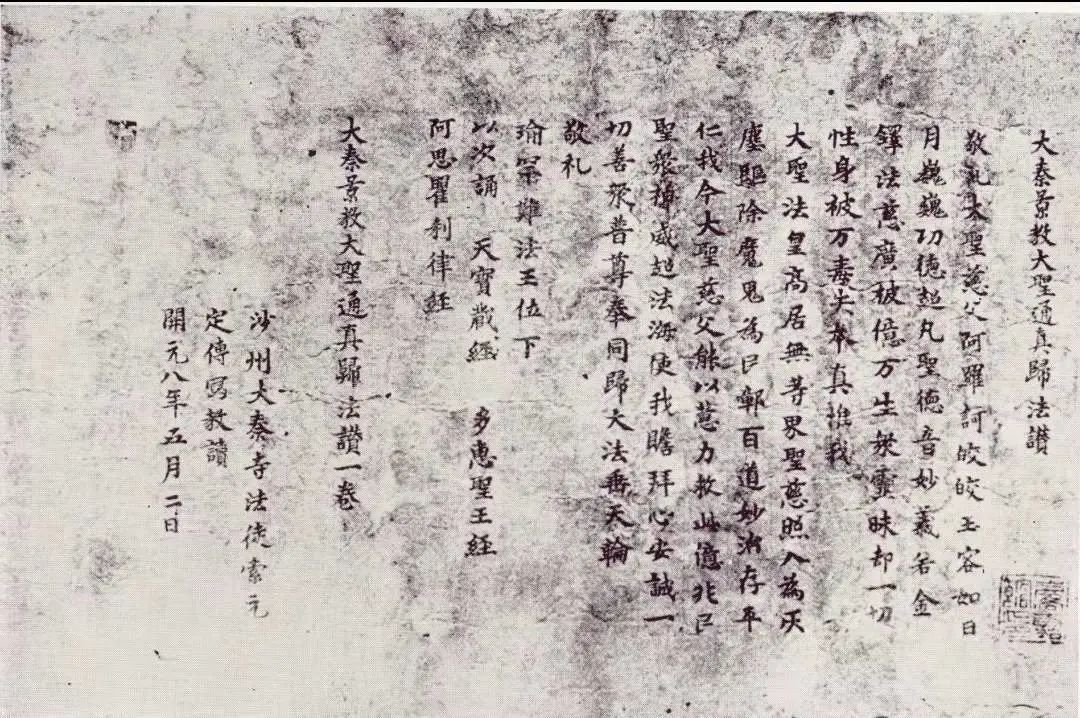 大秦景教大聖通真歸法讚
敬礼大聖慈父阿羅訶皎皎玉容如日
月巍巍功德超凡聖德音妙義若金
鐸法慈廣被億万生衆靈昧却一切
性身被万毒失本真惟我
大聖法皇高居無等界聖慈照入為灰
塵驅除魔鬼為民鄣百道妙治存平
仁我今大聖慈父能以慧力救此億兆民
聖衆掉威超法海使我瞻拜心安誠一
切善衆普尊奉同歸大法垂天輪
敬礼
瑜罕難法王位下
以次誦 天寶藏経 多惠聖王経
阿思瞿利律経
大秦景教大聖通真歸法讚一卷
沙州大秦寺法徒索元
定傳寫教讀
開元八年五月二日